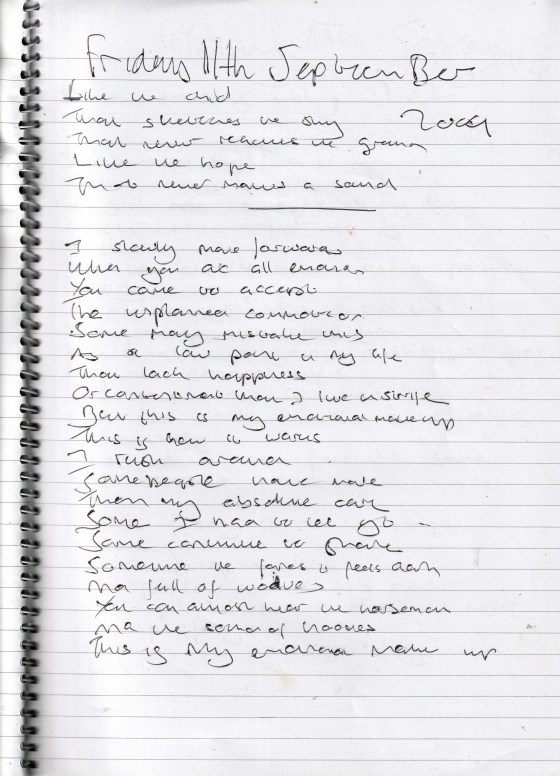 Friday 11th September
Like the child
That stretches the sky 2009
That never reaches the ground
Like the hope
That never makes a sound
I slowly move forwards
When you are all around
You came to accept
The unplanned
Some may mistake this
As a low point in my life
That lack happiness
Or that I live in strife
But this is my emotional makeup
This is how it works
I rush around
Some people have more
Than my absolute care
Some I had to let go -
Some continue to
Sometime the is feels dark
And full of wolves
You can almost hear the horseman
And the sound of hooves
This is my emotional make up